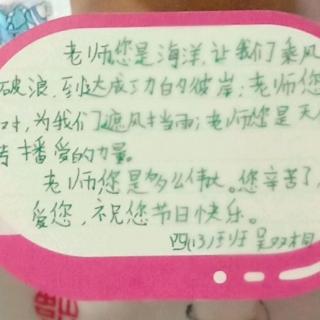 老师您是海洋,让我们乘风
破浪,到达成功的彼岸;老师您
,为我们遮风挡雨;老师您是天
播爱的力量。
老师您是多么伟大。您辛苦了,
爱您,祝您节日快乐。
四(3)班 吴双